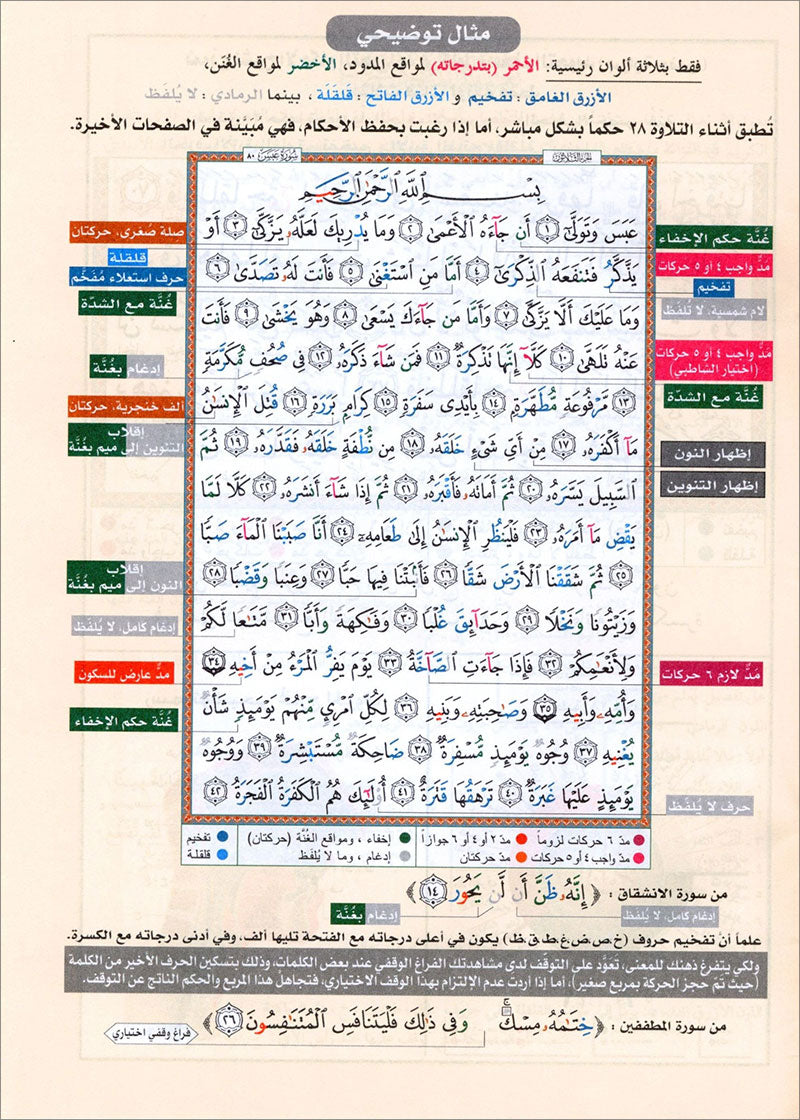 مثال توضيحي
فقط بثلاثة ألوان رئيسية: الأحمر (بتدرجاته) لمواقع المدود، الأخضر لمواقع الغُنَن،
الأزرق الغامق : تفخيم و الأزرق الفاتح : قلقلَة ، بينما الرمادي : لا يُلفَظ
تُطبق أثناء التلاوة ٢٨ حكماً بشكل مباشر، أما إذا رغبت بحفظ الأحكام، فهي مُبَيَّنة في الصفحات الأخيرة.
الجزء الثلاثون
سورة عبس ٨٠
بِسْمِ اللَّهِ الرَّحْمَٰنِ الرَّحِيمِ
عَبَسَ وَتَوَلَّىٰٓ ١ أَن جَآءَهُ ٱلْأَعْمَىٰ ٢ وَمَا يُدْرِيكَ لَعَلَّهُۥ يَزَّكَّىٰٓ ٣ أَوْ
يَذَّكَّرُ فَتَنفَعَهُ ٱلذِّكْرَىٰٓ ٤ أَمَّا مَنِ ٱسْتَغْنَىٰ ٥ فَأَنتَ لَهُۥ تَصَدَّىٰ ٦
وَمَا عَلَيْكَ أَلَّا يَزَّكَّىٰ ٧ وَأَمَّا مَن جَآءَكَ يَسْعَىٰ ٨ وَهُوَ يَخْشَىٰ ٩ فَأَنتَ
عَنْهُ تَلَهَّىٰ ١٠ كَلَّآ إِنَّهَا تَذْكِرَةٌ ١١ فَمَن شَآءَ ذَكَرَهُۥ ١٢ فِى صُحُفٍ مُّكَرَّمَةٍ
١٣ مَّرْفُوعَةٍ مُّطَهَّرَةٍۭ ١٤ بِأَيْدِى سَفَرَةٍ ١٥ كِرَامٍۭ بَرَرَةٍ ١٦ قُتِلَ ٱلْإِنسَٰنُ
مَآ أَكْفَرَهُۥ ١٧ مِنْ أَىِّ شَىْءٍ خَلَقَهُۥ ١٨ مِن نُّطْفَةٍ خَلَقَهُۥ فَقَدَّرَهُۥ ١٩ ثُمَّ
ٱلسَّبِيلَ يَسَّرَهُۥ ٢٠ ثُمَّ أَمَاتَهُۥ فَأَقْبَرَهُۥ ٢١ ثُمَّ إِذَا شَآءَ أَنشَرَهُۥ ٢٢ كَلَّا لَمَّا
يَقْضِ مَآ أَمَرَهُۥ ٢٣ فَلْيَنظُرِ ٱلْإِنسَٰنُ إِلَىٰ طَعَامِهِۦٓ ٢٤ أَنَّا صَبَبْنَا ٱلْمَآءَ صَبًّا
٢٥ ثُمَّ شَقَقْنَا ٱلْأَرْضَ شَقًّا ٢٦ فَأَنۢبَتْنَا فِيهَا حَبًّا ٢٧ وَعِنَبًا وَقَضْبًا ٢٨
وَزَيْتُونًا وَنَخْلًا ٢٩ وَحَدَآئِقَ غُلْبًا ٣٠ وَفَٰكِهَةً وَأَبًّا ٣١ مَّتَٰعًا لَّكُمْ
وَلِأَنْعَٰمِكُمْ ٣٢ فَإِذَا جَآءَتِ ٱلصَّآخَّةُ ٣٣ يَوْمَ يَفِرُّ ٱلْمَرْءُ مِنْ أَخِيهِ ٣٤
وَأُمِّهِۦ وَأَبِيهِ ٣٥ وَصَٰحِبَتِهِۦ وَبَنِيهِ ٣٦ لِكُلِّ ٱمْرِئٍ مِّنْهُمْ يَوْمَئِذٍ شَأْنٌ
يُغْنِيهِ ٣٧ وُجُوهٌ يَوْمَئِذٍ مُّسْفِرَةٌ ٣٨ ضَاحِكَةٌ مُّسْتَبْشِرَةٌ ٣٩ وَوُجُوهٌ
يَوْمَئِذٍ عَلَيْهَا غَبَرَةٌ ٤٠ تَرْهَقُهَا قَتَرَةٌ ٤١ أُو۟لَٰٓئِكَ هُمُ ٱلْكَفَرَةُ ٱلْفَجَرَةُ ٤٢
غُنَّة حكم الإخفاء
مَدّ واجب ٤ او ٥ حركات
تفخيم
لام شمسية، لا تُلفَظ
مَدّ واجب ٤ او ٥ حركات
(اختيار الشاطبي)
غُنَّة مع الشدّة
إظهار النون
إظهار التنوين
مَدّ لازم ٦ حركات
حرف لا يُلفَظ
صلة صُغرى، حركتان
قلقلة
حرف استعلاء مُفَخَّم
غُنَّة مع الشدّة
إدغام بغُنَّة
ألف خنجرية، حركتان
إقلاب
التنوين إلى ميم بغُنَّة
إقلاب
النون إلى ميم بغُنَّة
إدغام كامل، لا يُلفَظ
مَدّ عارض للسكون
غُنَّة حكم الإخفاء
مدّ ٦ حركات لزوماً
مدّ ٢ أو ٤ أو ٦ جوازاً
إخفاء ، ومواقع الغُنَّة (حركتان)
تفخيم
مدّ واجب ٤ أو ٥ حركات
مدّ حركتان
إدغام ، وما لا يُلفَظ
قلقلة
من سورة الانشقاق : ﴿ إِنَّهُۥ ظَنَّ أَن لَّن يَحُورَ ١٤ ﴾
إدغام كامل، لا يُلفَظ
إدغام بغُنَّة
علماً أنّ تفخيم حروف (خ.ص.ض.غ.ط.ق.ظ) يكون في أعلى درجاته مع الفتحة تليها ألف، وفي أدنى درجاته مع الكسرة.
ولكي يتفرغ ذهنك للمعنى، تَعوَّد على التوقّف لدى مشاهدتك الفراغ الوقفي عند بعض الكلمات، وذلك بتسكين الحرف الأخير من الكلمة
(حيث تمّ حجز الحركة بمربع صغير)، أما إذا أردت عدم الإلتزام بهذا الوقف الاختياري، فتجاهلْ هذا المربع والحكم الناتج عن التوقف.
من سورة المطففين : ﴿ خِتَٰمُهُۥ مِسْكٌ ۚ وَفِى ذَٰلِكَ فَلْيَتَنَافَسِ ٱلْمُتَنَٰفِسُونَ ٢٦ ﴾
فراغ وقفي اختياري